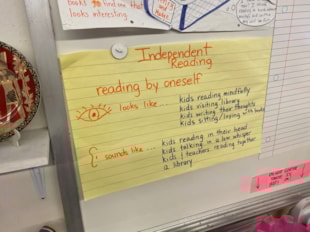 books to find one that
looks interesting
Independent
Reading
reading by oneself
looks like... kids reading mindfully
kids visiting library
kids writing their thoughts
kids sitting/laying with books
sounds like... kids reading in their head
kids talking in a low whisper
kids/teachers reading together
a library